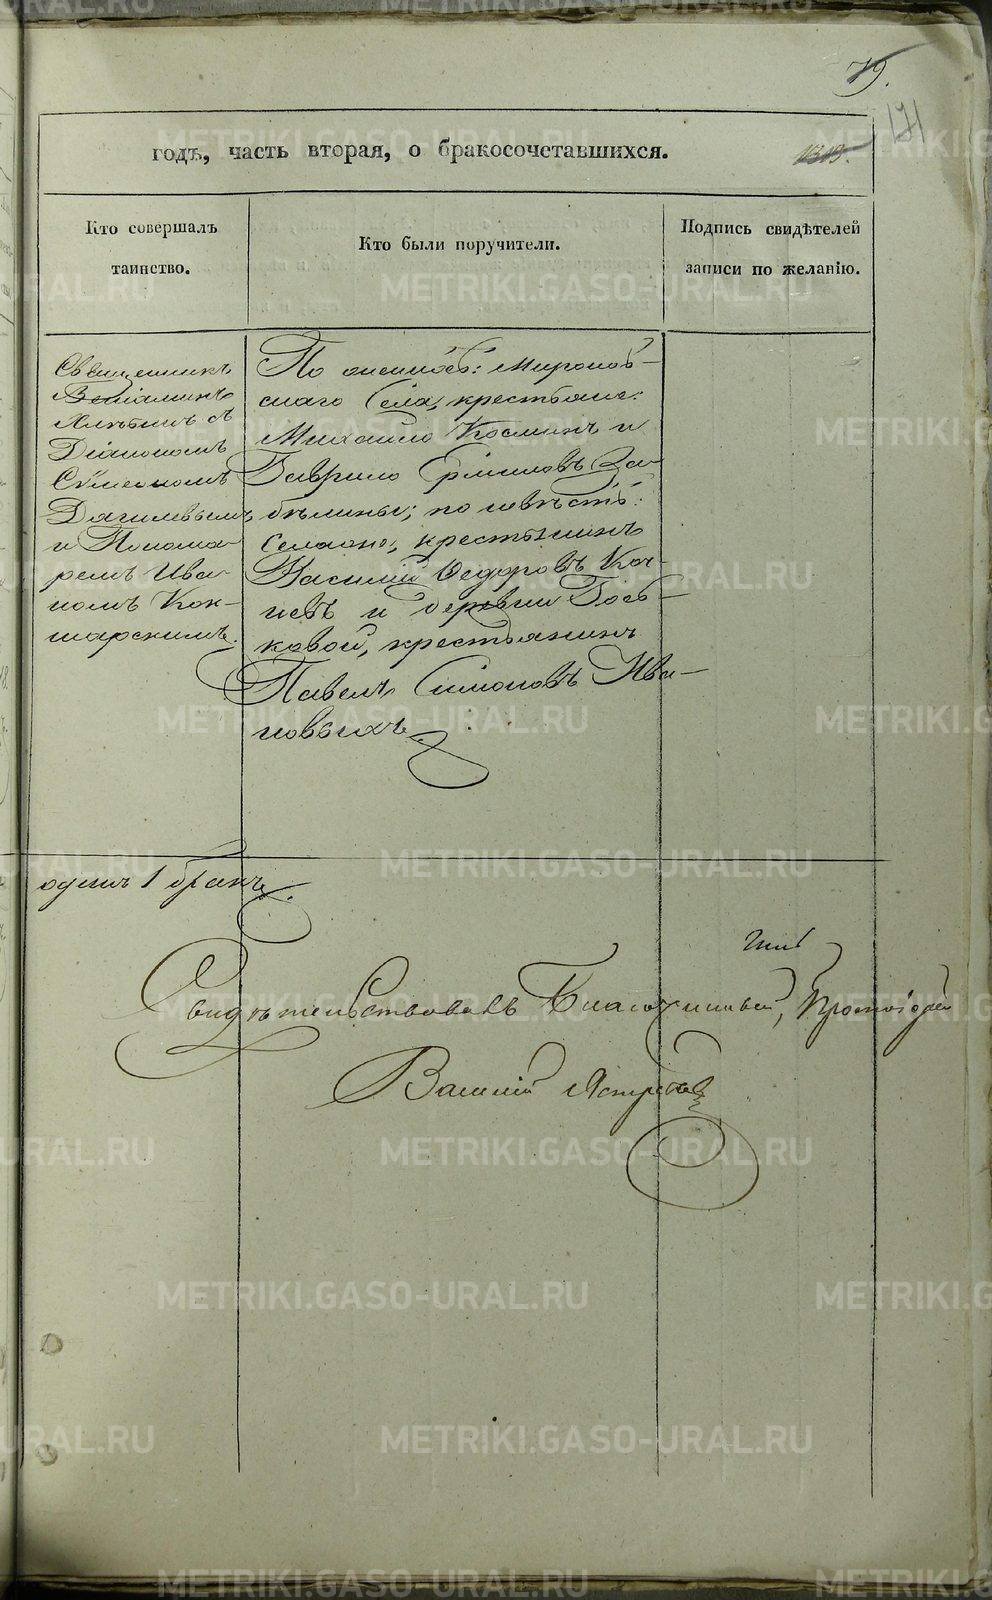 79.
171
годѣ, часть вторая, о бракосочетавшихся.
1313.
Кто совершалъ
таинство.
Кто были поручители.
Подпись свидѣтелей
записи по желанію.
Священникъ
Веніаминъ
Хлѣбинъ съ
Діакономъ
Сѵмеономъ
Дягилевымъ,
и Понома-
ремъ Ива-
номъ Кок-
шарскимъ.
По женихѣ: Миронов-
скаго Села, крестьяне:
Михайло Косминъ и
Гаврило Ерминовъ За-
бѣлины; по невѣстѣ:
Селаоно, крестьянинъ
Василій Ѳедоровъ Коч-
невъ и деревни Гось-
ковой, крестьянинъ
Павелъ Симоновъ Ива-
новыхъ
одинъ 1 бракъ.
Свидѣтельствовалъ Благочинный, Протоіерей
Василій Ястребовъ
METRIKI.GASO-URAL.RU